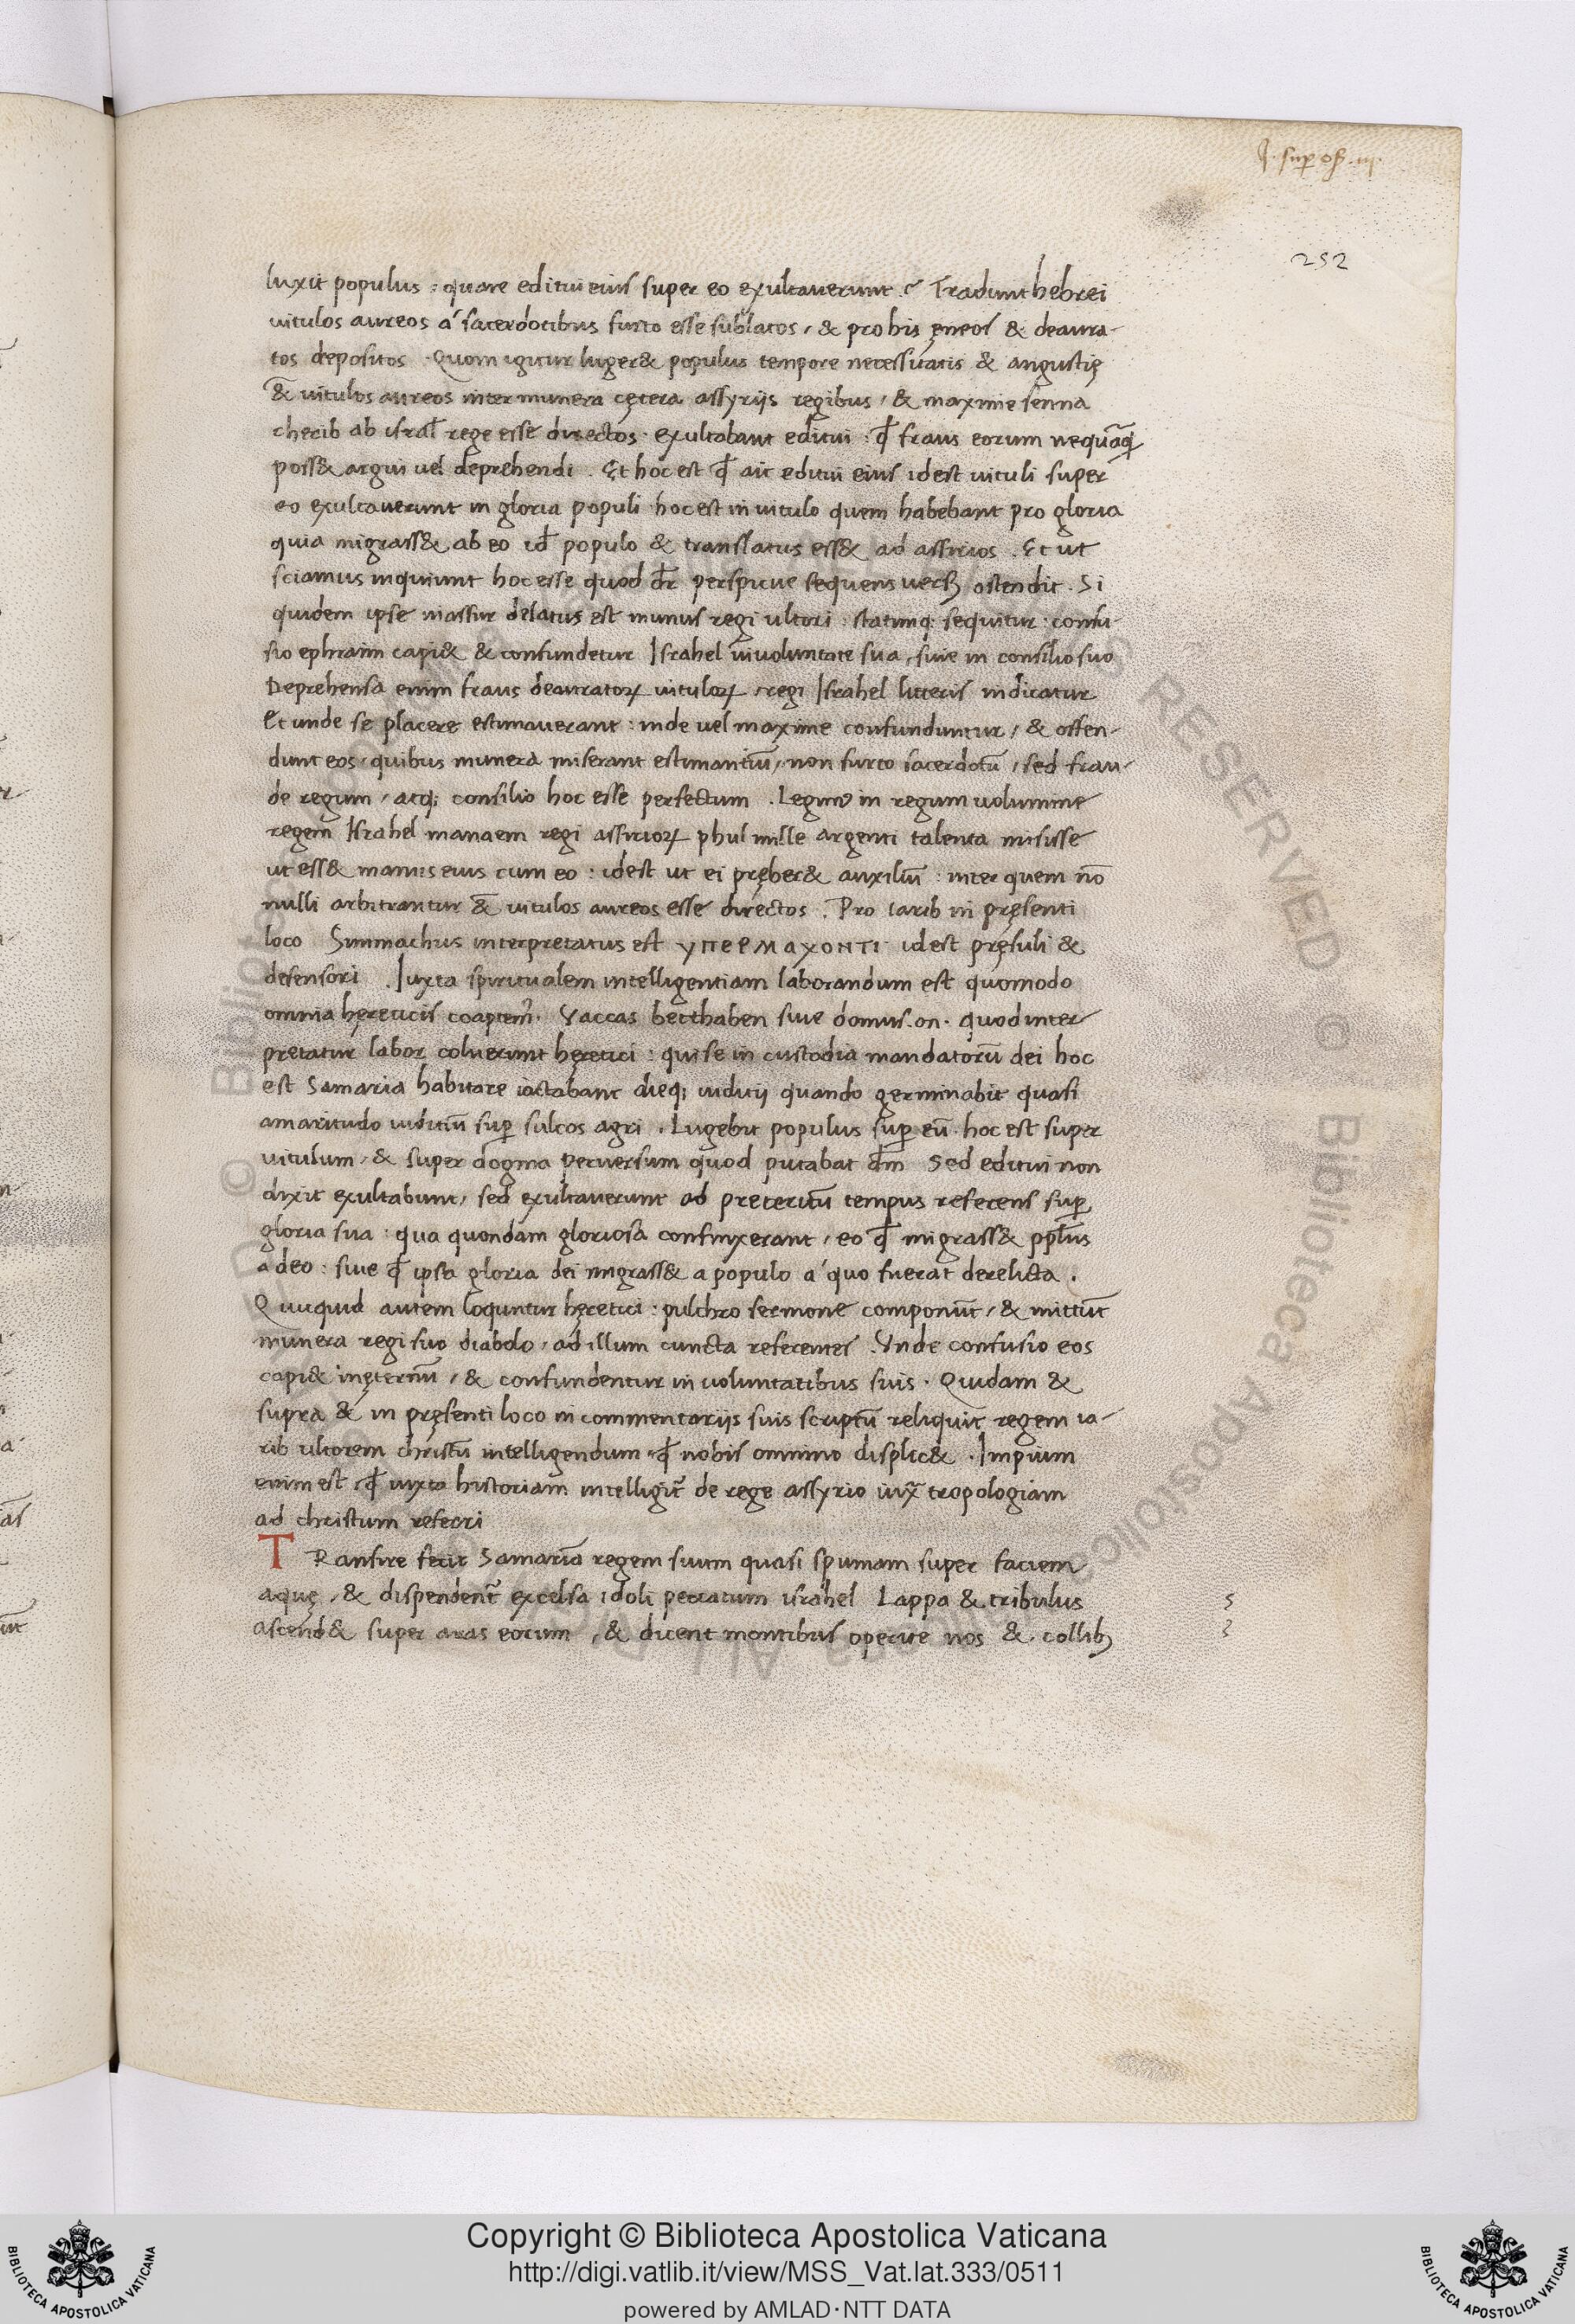 J. sup os. iij.
252
luxit populus : quare editui eius super eo exultauerunt .? Tradunt hebrei
uitulos aureos á sacerdotibus furto esse sublatos , & pro his ęneos & deaura-
tos depositos . Quom igitur luger& populus tempore necessitatis & angustię
& uitulos aureos inter munera cętera assyriis regibus , & maxime senna
cherib ab israł rege esse directos . exultabant editui : qđ fraus eorum nequāq̄
poss& argui uel deprehendi . Et hoc est qđ ait editui eius idest uituli super
eo exultauerunt in gloria populi hoc est in uitulo quem habebant pro gloria
quia migrass& ab eo idł populo & translatus ess& ad assirios . Et ut
sciamus inquiunt hoc esse quod dr̄ perspicue sequens uersꝫ ostendit . Si
quidem ipse inassur delatus est munus regi ultori : statimqꝫ sequitur : confu-
sio ephraim capi& & confundetur Israhel in uoluntate sua , siue in consilio suo
Deprehensa enim fraus deauratoꝝ uituloꝝ , regi Israhel litteris indicatur
Et unde se placere estimauerant : inde uel maxime confunduntur , & offen-
dunt eos , quibus munera miserant estimantiū , non furto sacerdotū , sed frau-
de regum , atqꝫ consilio hoc esse perfectum . Legimꝰ in regum uolumine
regem Israhel manaem regi assirioꝝ phul mille argenti talenta misisse
ut ess& manus eius cum eo : idest ut ei pręber& auxiliū : inter quem nō
nulli arbitrantur & uitulos aureos esse directos . Pro iarib in pręsenti
loco Simmachus interpretatus est ΥΠΕΡΜΑΧΟΝΤΙ idest pręsuli &
defensori . Iuxta spiritualem intelligentiam laborandum est quomodo
omnia hęreticis coaptemꝰ . Vaccas betthaben siue domus . on . quod inter
pretatur labor coluerunt hęretici : qui se in custodia mandatorū dei hoc
est Samaria habitare iactabant dieqꝫ iuditij quando germinabit quasi
amaritudo iuditiū suꝑ sulcos agri . Lugebit populus suꝑ eū . hoc est super
uitulum , & super dogma peruersum quod putabat dm̄ Sed editui non
dixit exultabunt , sed exultauerunt ad preteritū tempus referens suꝑ
gloria sua : qua quondam gloriosa confinxerant , eo qđ migrass& ppłus
a deo : siue qđ ipsa gloria dei migrass& a populo a´ quo fuerat derelicta .
Quicquid autem loquntur hęretici : pulchro sermone componūt , & mittūt
munera regi suo diabolo , ad illum cuncta referentes . Vnde confusio eos
capi& inęternū , & confundentur in uoluntatibus suis . Quidam &
supra & in pręsenti loco in commentarijs suis scriptū reliquit regem ia-
rib ultorem christū intelligendum qđ nobis omnino displic& . Impium
enim est qđ iuxta historiam intelligit̄ de rege assyrio iux̄ tropologiam
ad christum referri
TRansire fecit Samaria regem suum quasi spumam super faciem
aquę , & dispendent̄ excelsa idoli peccatum israhel Lappa & tribulus
ascend& super aras eorum , & dicent montibus operite nos & . collibꝫ
Copyright © Biblioteca Apostolica Vaticana
http://digi.vatlib.it/view/MSS_Vat.lat.333/0511
powered by AMLAD·NTT DATA
BIBLIOTECA APOSTOLICA VATICANA
BIBLIOTECA APOSTOLICA VATICANA